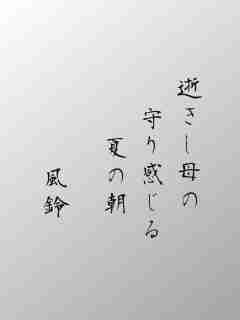 逝きし母の
守り感じる
夏の朝
風鈴